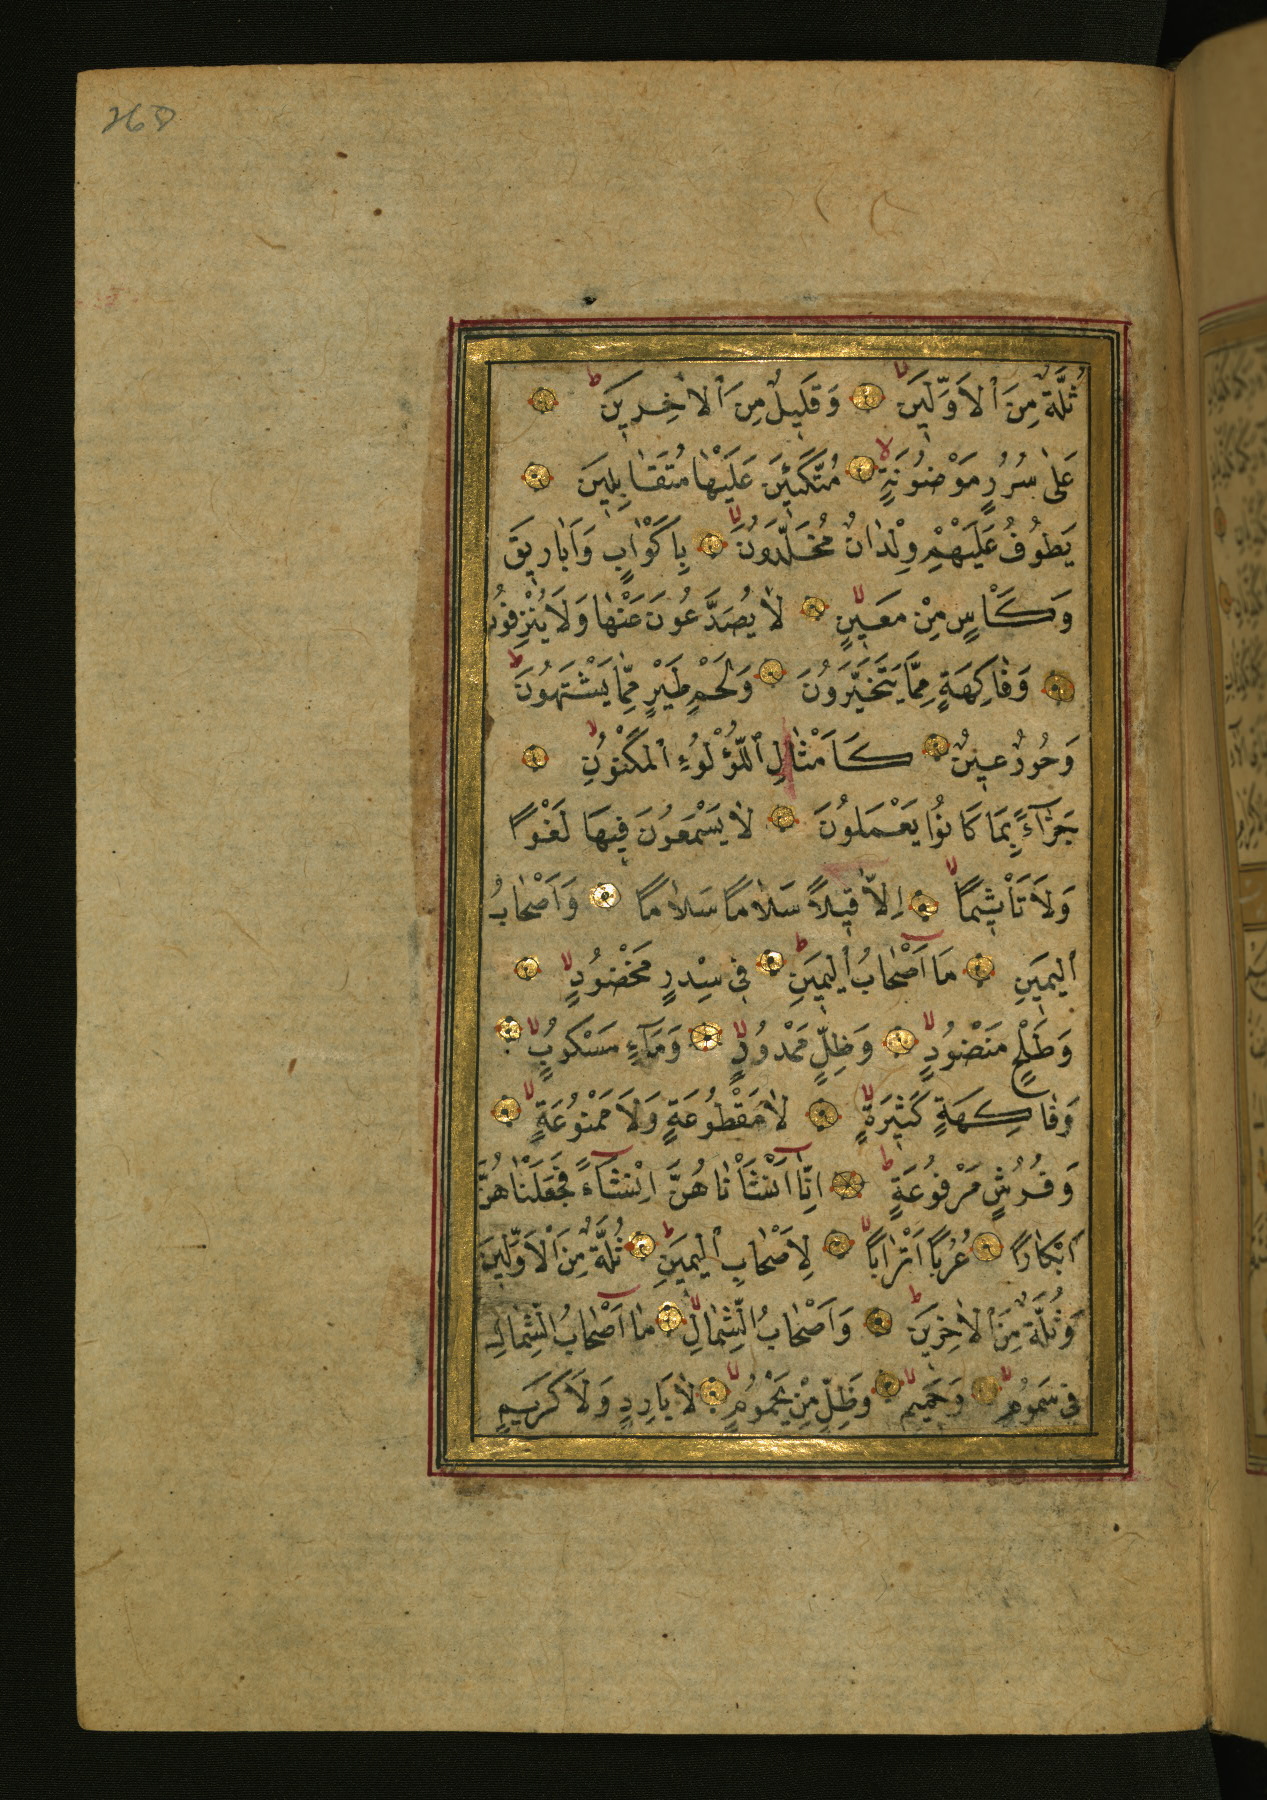 268
ثُلَّةٌ مِنَ ٱلاَوَّلِينَ وَقَلِيلٌ مِنَ ٱلاٰخِرِينَ
عَلٰى سُرُرٍ مَوْضُونَةٍ مُتَّكِئِينَ عَلَيْهَا مُتَقَابِلِينَ
يَطُوفُ عَلَيْهِمْ وِلْدَانٌ مُخَلَّدُونَ بِاَكْوَابٍ وَاَبَارِيقَ
وَكَاْسٍ مِنْ مَعِينٍ لاٰ يُصَدَّعُونَ عَنْهَا وَلاَ يُنْزِفُونَ
وَفَاكِهَةٍ مِمَّا يَتَخَيَّرُونَ وَلَحْمِ طَيْرٍ مِمَّا يَشْتَهُونَ
وَحُورٌ عِينٌ كَاَمْثَالِ ٱللُّؤْلُوءِ ٱلْمَكْنُونِ
جَزَآءً بِمَا كَانُوا يَعْمَلُونَ لاٰ يَسْمَعُونَ فِيهَا لَغْوًا
وَلاَ تَاْثِيمًا اِلاَّ قِيلاً سَلاَمًا سَلاَمًا وَاَصْحَابُ
ٱلْيَمِينِ مَا اَصْحَابُ ٱلْيَمِينِ فِي سِدْرٍ مَخْضُودٍ
وَطَلْحٍ مَنْضُودٍ وَظِلٍّ مَمْدُودٍ وَمَآءٍ مَسْكُوبٍ
وَفَاكِهَةٍ كَثِيرَةٍ لاٰ مَقْطُوعَةٍ وَلاَ مَمْنُوعَةٍ
وَفُرُشٍ مَرْفُوعَةٍ اِنَّا اَنْشَاْنَاهُنَّ اِنْشَآءً فَجَعَلْنَاهُنَّ
اَبْكَارًا عُرُبًا اَتْرَابًا لِاَصْحَابِ ٱلْيَمِينِ ثُلَّةٌ مِنَ ٱلْاَوَّلِينَ
وَثُلَّةٌ مِنَ ٱلاٰخِرِينَ وَاَصْحَابُ الشِّمَالِ مَا اَصْحَابُ الشِّمَالِ
فِي سَمُومٍ وَحَمِيمٍ وَظِلٍّ مِنْ يَحْمُومٍ لاٰ بَارِدٍ وَلاَ كَرِيمٍ